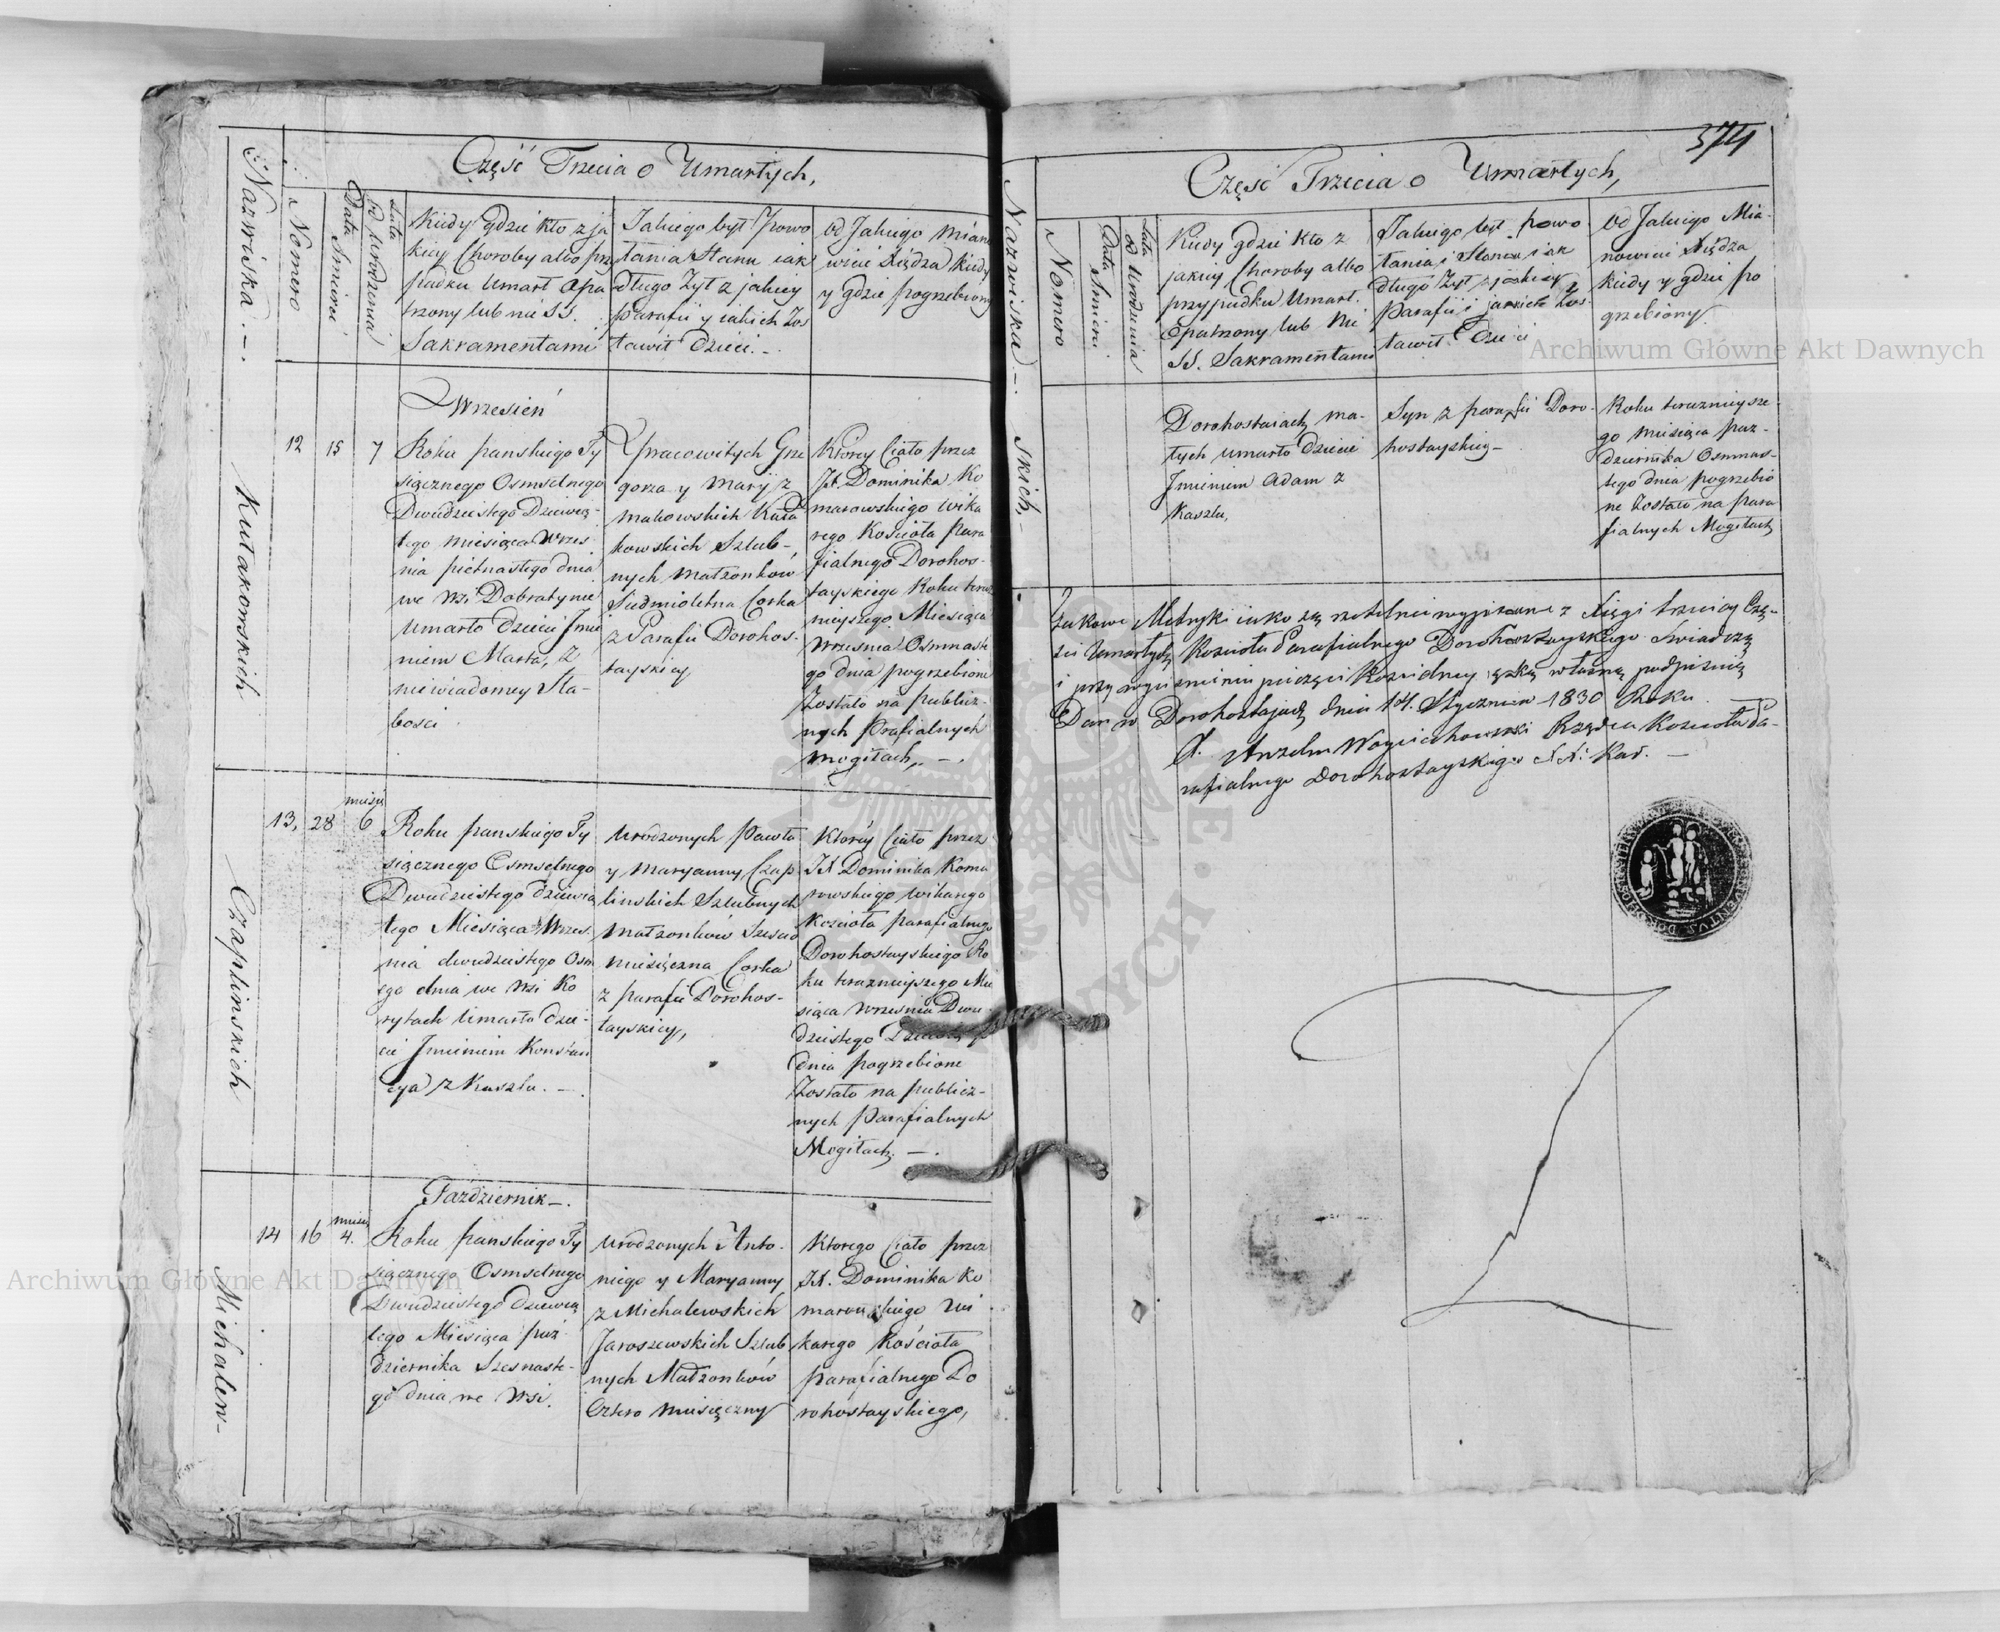 Część Trzecia o Umarłych,
Nazwiska. –.
Nomero
Data Smierci
Lata od Urodzenia
Kiedy gdzie kto z ja
kiey Choroby albo prz
padku Umarł Opa
trzony lub nie SS.
Sakramentami
Jakiego był Powo
łania Stanu iak
długo Żył z jakiey
Parafii y iakich Zos
tawił Dzieci. –
Od Jakiego Miano
wicie Xiędza kiedy
y gdzie pogrzebiony
Wrzesień
Kułakowskich
12
15
7
Roku Panskiego Ty
siącznego Osmsetnego
Dwudziestego Dziewią-
tego Miesiąca Wrzes
nia pietnastego dnia
we Wsi Dobratynie
Umarło Dziecie Jmie
niem Marta, z
niewiadomey Sła-
bosci.
Zpracowitych Grze
gorza y Maryi z
Makowskich Kuła
kowskich Szlub-
nych Małzonków
Siedmioletna Corka
z Parafii Dorohos-
tayskiey
Którey Ciało przez
JX. Dominika Ko
marowskiego Wika
rego Kościoła Para
fialnego Dorohos-
tayskiego Roku tera
nieyszego Miesiąca
Wrzesnia Osmnaste
go dnia pogrzebione
Zostało na publicz-
nych Prafialnych
Mogiłach. –.
Czaplinskich
13,
28
miesię
6
Roku Panskiego Ty
siącznego Osmsetnego
Dwudziestego dziewią
tego Miesiąca Wrzes-
nia dwudziestego Osm
ego dnia we Wsi Ko
rytach Umarło dzie-
cie Jmieniem Konstan
cya z Kaszlu. –.
Urodzonych Pawła
y Maryanny Czap
linskich Szlubnych
Małzonków Szescio
miesięczna Corka
z parafii Dorohos-
tayskiey,
Którey Ciało przez
JX Dominika Koma
rowskiego Wikarego
Kościoła parafialnego
Dorohostayskiego Ro
ku teraznieyszego Mie
siąca Wrzesnia Dwu
dziestego
dnia pogrzebione
Zostało na publicz-
nych Parafialnych
Mogiłach. –.
Październik –.
Michalew-
14
16
miesię
4.
Roku Panskiego Ty
siącznego Osmsetnego
Dwudziestego dziewią
tego Miesiąca paź-
dziernika Szesnaste-
go dnia we Wsi.
Urodzonych Anto-
niego y Maryanny
z Michalewskich
Jaroszewskich Szlub
nych Małzonków
Cztero miesięczny
Ktorego Ciało przez
JX. Dominika Ko
marowskiego Wi
karego Kościoła
parafialnego Do
rohostayskiego,
374
Część Trzecia o Umarłych,
Nazwiska. –.
Nomero
Data Smierci
Lata od Urodzenia
Kiedy gdzie Kto z
jakiey Choroby albo
przypadku Umarł.
Opatrzony lub Nie
SS. Sakramentami
Jakiego był Powo
łania i Stanu i jak
długo Żył z jakiey
Parafii i jakich Zos-
tawił Dzieci
Od Jakiego Mia-
nowicie Xiędza
kiedy y gdzie po
grzebiony.
skich,
Dorohostaiach ma-
łych umarło Dziecie
Jmieniem Adam z
Kaszlu,
Syn z parafii Doro-
hostayskiey –
Roku teraznieysze-
go miesiąca paz-
dziernika Osmnas-
tego dnia pogrzebio
ne Zostało na para
fialnych Mogiłach
Jakowe Metryki iako są rzetelnie wypisane z Xięgi trzeciey Częś-
ci Umarłych Kościoła Parafialnego Dorohostayskiego Świadczę
i przy wyciśnieniu pieczęci Koscielney ręką własną podpisuię
Dan w Dorohostajach dnia 14. Stycznia 1830 Roku
X. Anzelm Woyciechowski Rządca Kosciołа Pa-
rafialnego Dorohostayskiego
Archiwum Główne Akt Dawnych
Archiwum Główne Akt Dawnych